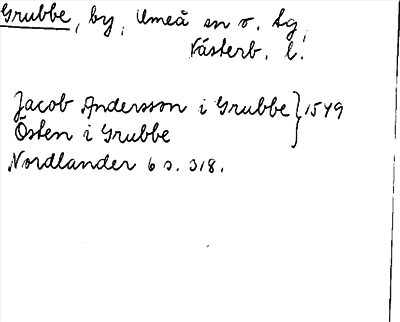 Grubbe, by, Umeå sn o. tg,
Västerb. l.
Jacob Andersson i Grubbe } 1549
Östen i Grubbe
Nordlander 6 s. 318.